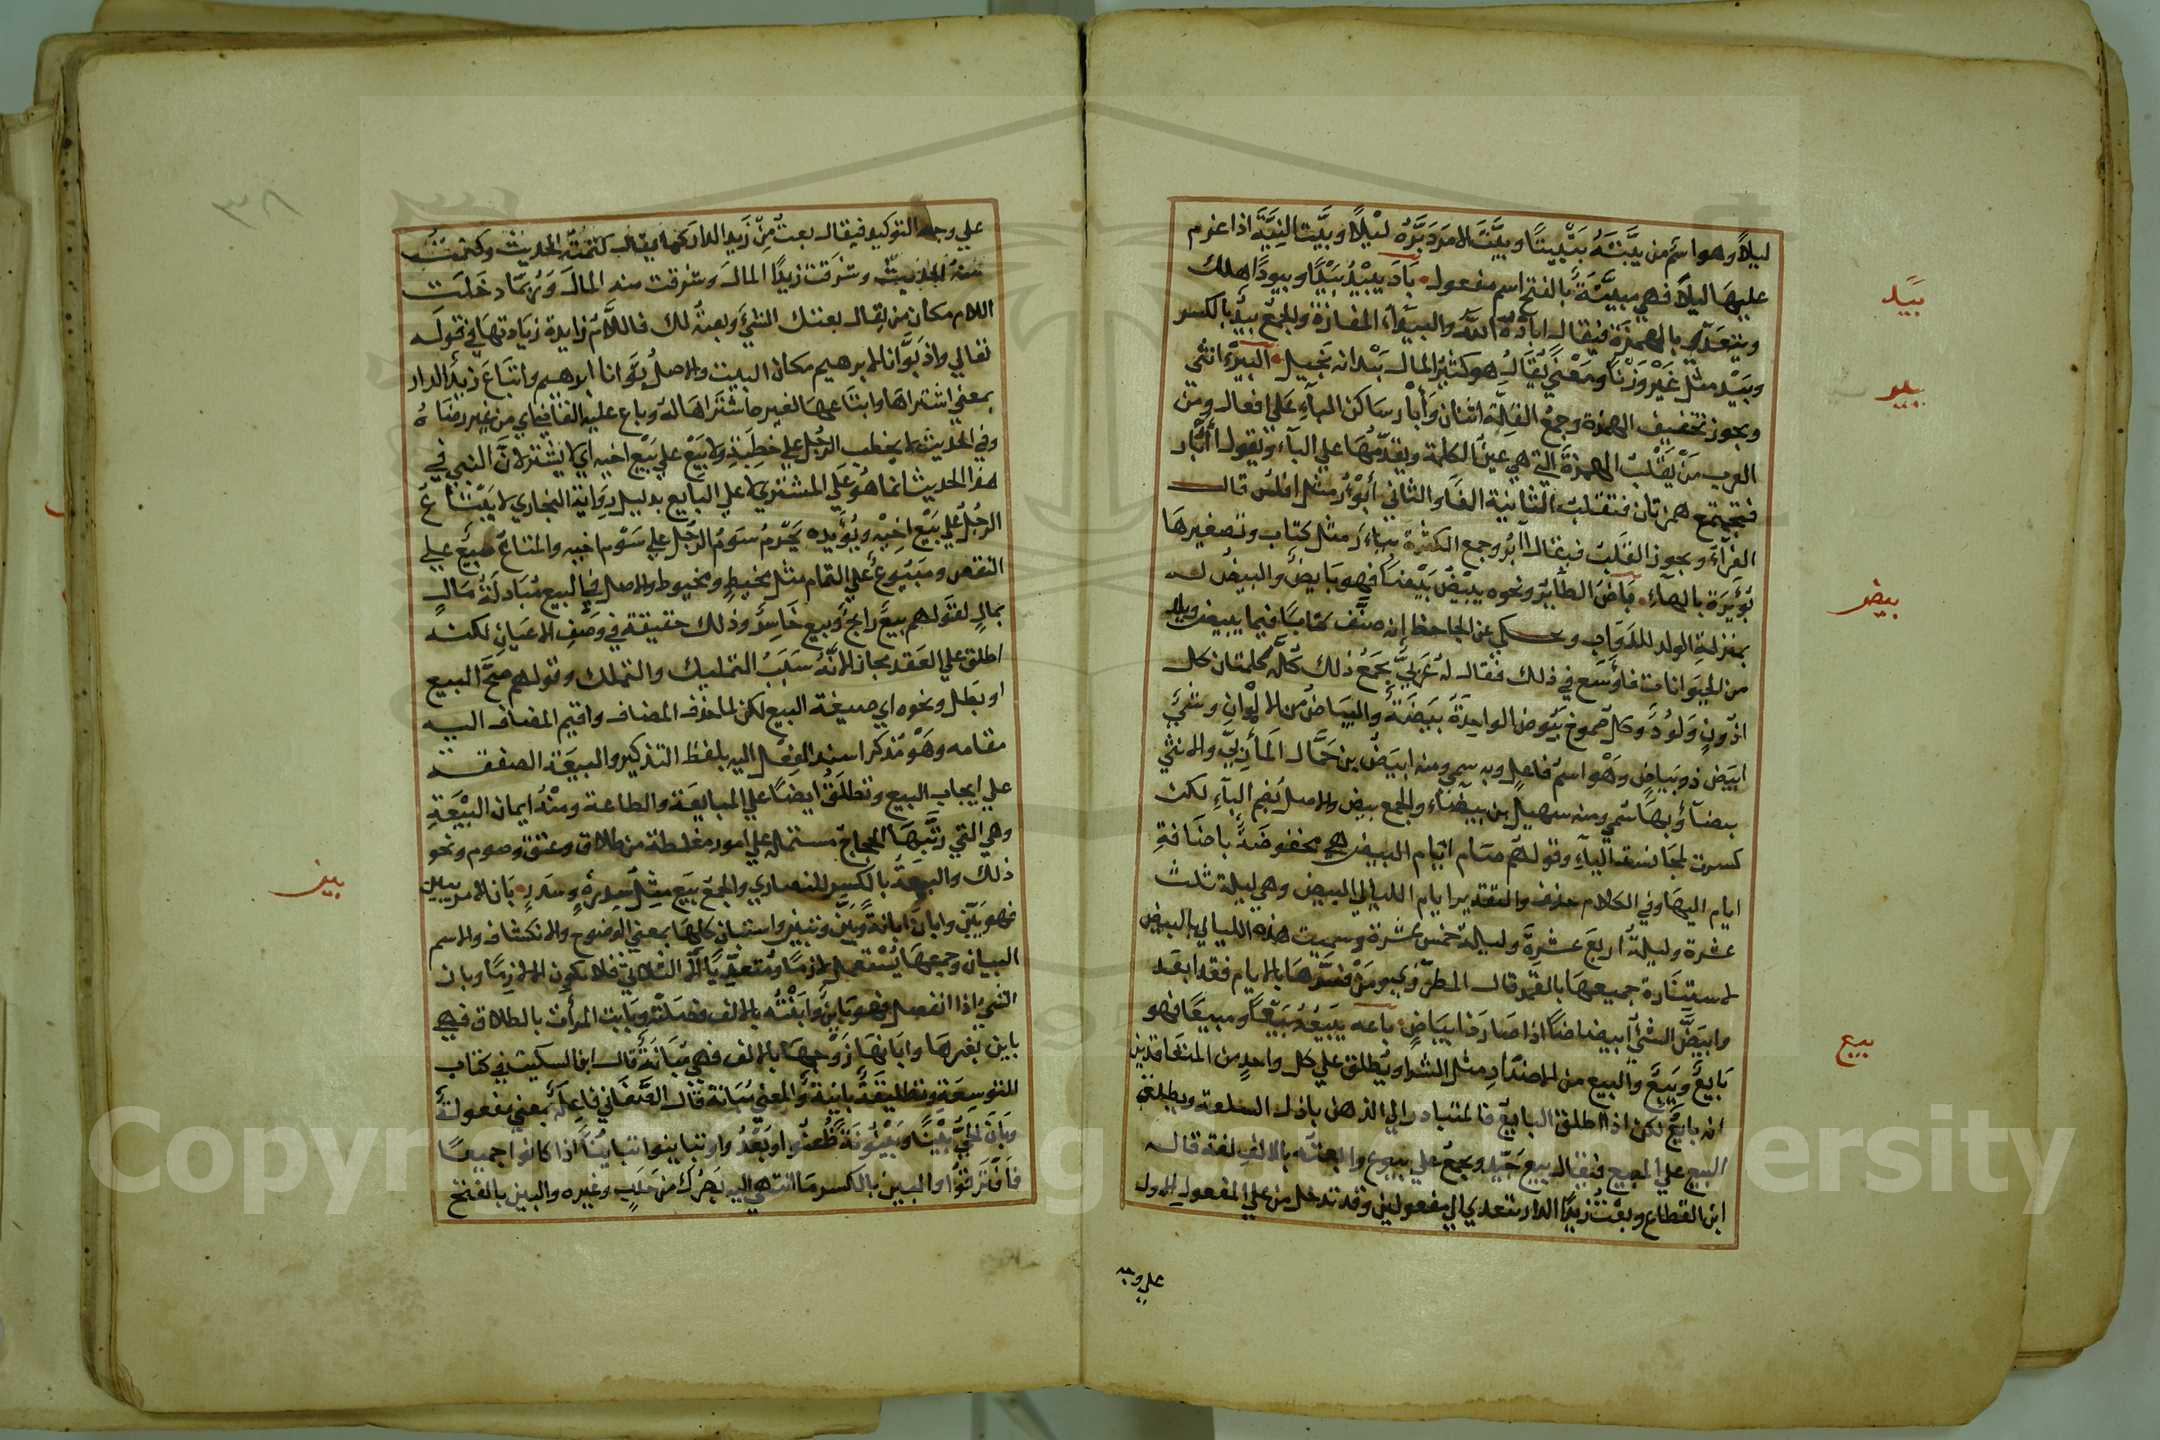 ليلاً وهو اسم من بيّته تبييتا وبيّت الامر دبّره ليلاً وبيّت النيّة اذا عزم
عليها ليلا فهي مبيّتة بالفتح اسم مفعول باد يبيد بيدا وبيودا هلك
ويتعدي بالهمزة فيقال اباده الله والبيداء المفازة والجمع بيد بالكسر
وبيد مثل غير وزنا ومعني يقال هو كثير المال بيد انه بخيل البير انثي
ويجوز تخفيف الهمزة وجمع القلة اثنان وأبار ساكن الباء علي افعال ومن
العرب من يقلب الهمزة التي هي عين الكلمة ويقدمها علي الباء ويقول أأبار
فتجتمع همزتان فتقلب الثانية الفا والثاني أبؤر مثل افلس قال
الفراء ويجوز القلب فيقال آبر وجمع الكثرة بئار مثل كتاب وتصغيرها
بؤيرة بالهاء باض الطائر ونحوه يبيض بيضا فهو بايض والبيض له
بمنزلة الولد للدواب وحكي عن الجاحظ انه صنّف كتابا فيما يبيض ويلد
من الحيوانات فأوسع في ذلك فقال له عربي يجمع ذلك كله كلمتان كل
اذون ولود وكل صموخ بيوض الواحدة بيضة والبياض من الالوان وشئ
ابيض ذو بياض وهو اسم فاعل وبه سمي ومنه ابيض بن حمال المأربي والانثي
بيضاء وبها سمي ومنه سهيل بن بيضاء والجمع بيض والاصل بضم الباء لكن
كسرت لمجانسة الياء وقولهم صام ايام البيض هي مخفوضة باضافة
ايام اليها وفي الكلام حذف والتقدير ايام الليالي البيض وهي ليلة ثلث
عشرة وليلة اربع عشرة وليلة خمس عشرة وسميت هذه الليالي بالبيض
لاستنارة جميعها بالقمر قال المطرزي ومن فسرها بالايام فقد ابعد
وابيضّ الشئ ابيضاضا اذا صار ذا بياض باعه يبيعه بيعا ومبيعا فهو
بايع وبيع والبيع من الاضداد مثل الشرا ويطلق علي كل واحد من المتعاقدين
انه بايع لكن اذا اطلق البايع فالمتبادر الي الذهن باذل السلعة ويطلق
البيع علي المبيع فيقال بيع جيد ويجمع علي بيوع وابعته بالالف لغة قاله
ابن القطاع وبعت زيدا الدار يتعدي الي مفعولين وقد تدخل من علي المفعول الاول
علي وجه
بيد
بير
بيض
بيع
٣٨
علي وجه التوكيد فيقال بعت من زيد الدار كما يقال كتمته الحديث وكتمت
منه الحديث وسرقت زيدا المال وسرقت منه المال وربما دخلت
اللام مكان من يقال بعتك الشئ وبعته لك فاللام زايدة زيادتها في قوله
تعالي واذ بوانا لابرهيم مكان البيت والاصل بوانا ابرهيم وابتاع زيد الدار
بمعني اشتراها وابتاعها لغيره اشتراها له وباع عليه القاضي اي من غير رضاه
وفي الحديث لا يخطب الرجل علي خطبة ولا يبع علي بيع اخيه اي لا يشتر لان النهي في
هذا الحديث انما هو علي المشتري لا علي البايع بدليل رواية البخاري لا يبتاع
الرجل علي بيع اخيه ويؤيده يحرم سوم الرجل علي سوم اخيه والمتاع مبيع علي
النقص ومبيوع علي التمام مثل مخيط ومخيوط والاصل في البيع مبادلة مال
بمال لقولهم بيع رابح وبيع خاسر وذلك حقيقة في وصف الاعيان لكنه
اطلق علي العقد مجاز لانه سبب التمليك والتملك وقولهم صح البيع
او بطل ونحوه اي صيغة البيع لكن لما حذف المضاف واقيم المضاف اليه
مقامه وهو مذكر اسند الفعل اليه بلفظ التذكير والبيعة الصفقة
علي ايجاب البيع وتطلق ايضا علي المبايعة والطاعة ومنه ايمان البيعة
وهي التي رتبها الحجاج مشتملة علي امور مغلظة من طلاق وعتق وصوم ونحو
ذلك والبيعة بالكسر للنصاري والجمع بيع مثل سدرة وسدر بان الامر يبين
فهو بيّن وابان ابانة وبيّن وتبيّن واستبان كلها بمعني الوضوح والانكشاف والاسم
البيان وجميعها يستعمل لازما ومتعديا الا الثلاثي فلا يكون الا لازما وبان
الشئ اذا انفصل فهو باين وابنته بالالف فصلته وبانت المرأة بالطلاق فهي
باين بغير ها وابانها زوجها بالالف فهي مبانة قال ابن السكيت في كتاب
التوسعة وتطليقة باينة والمعني مبانة قال الصغاني فاعلة بمعني مفعولة
وبان الحي بينا وبينونة ظعنوا وبعدوا وتباينوا تباينا اذا كانوا جميعا
فافترقوا والبين بالكسر ما انتهي اليه بصرك من حدب وغيره والبين بالفتح
بين
Copyright © King Saud University